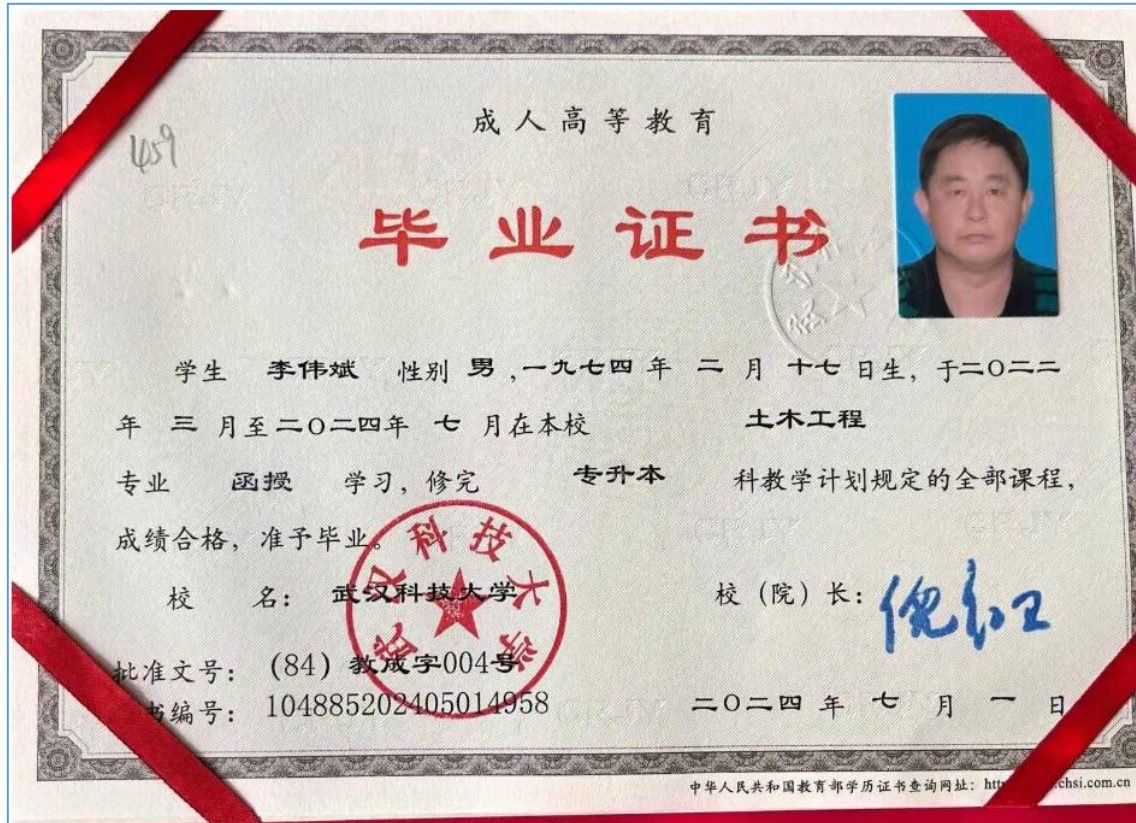 459
成人高等教育
毕业证书
学生 李伟斌 性别 男 ,一九七四 年 二 月 十七 日生，于二〇二二
年 三 月至二〇二四年 七 月在本校 土木工程
专业 函授 学习，修完 专升本 科教学计划规定的全部课程，
成绩合格，准予毕业。
武汉科技大学
校 名： 武汉科技大学 校（院）长：倪红卫
批准文号： (84) 教成字004号
书编号： 104885202405014958 二〇二四 年 七 月 一 日
中华人民共和国教育部学历证书查询网址： htt chsi.com.cn